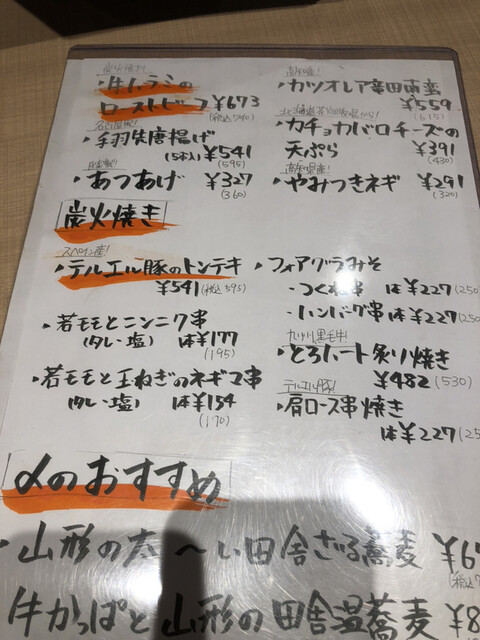 炭火焼き!
・牛ハラミの
ローストビーフ ¥673
(税込740)
名古屋風!
・手羽先唐揚げ
(5本入) ¥541
(595)
・あつあげ ¥327
(360)
・カツオレア竜田南蛮
¥559
(615)
・カチョカバロチーズの
天ぷら ¥391
(430)
高知県産!
・やみつきネギ ¥291
(320)
炭火焼き
スペイン産!
・テルエル豚のトンテキ
¥541 (税込595)
・若モモとニンニク串
(タレ・塩) 1本¥177
(195)
・若モモと玉ねぎのネギマ串
(タレ・塩) 1本¥154
(170)
・フォアグラみそ
・つくね串 1本¥227 (250
・ハンバーグ串 1本¥227 (250
九州黒毛牛!
・とろハート炙り焼き
¥482 (530)
テルエル豚!
・肩ロース串焼き
1本¥227 (25
〆のおすすめ
・山形の太〜い田舎ざる蕎麦 ¥67
(税込7
牛かっぱと山形の田舎温蕎麦 ¥8